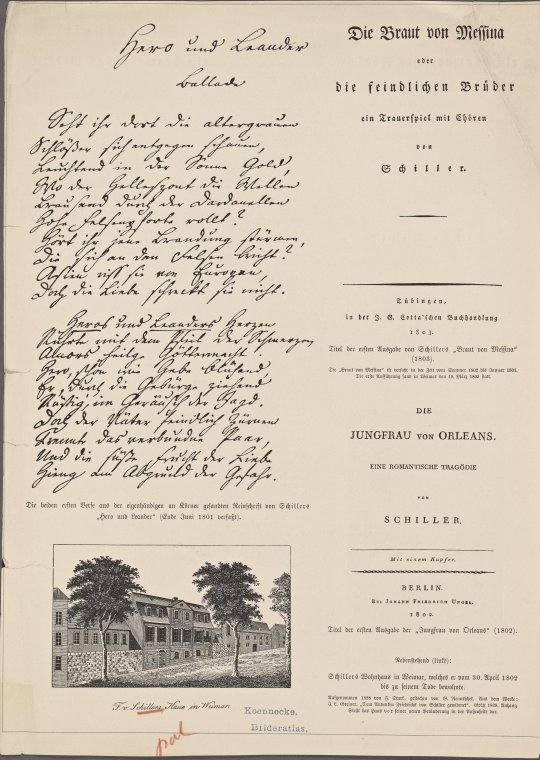 Hero und Leander
Ballade
Seht ihr dort die altergrauen
Schlößer sich entgegen schauen,
Leuchtend in der Sonne Gold,
Wo der Hellespont die Wellen
Brausend durch der Dardanellen
Hohe Felsenpforte rollt?
Hört ihr jene Brandung stürmen,
Die sich an den Felsen bricht?
Asien riß sie von Europen,
Doch die Liebe schreckt sie nicht.
Heros und Leanders Herzen
Rührte mit dem Pfeil der Schmerzen
Amors heilge Göttermacht.
Hero, schön wie Hebe blühend,
Er, durch die Gebürge ziehend
Rüstig, im Geräusch der Jagd.
Doch der Väter feindlich Zürnen
Trennte das verbundne Paar,
Und die süße Frucht der Liebe
Hieng am Abgrund der Gefahr.
Die beiden ersten Verse aus der eigenhändigen an Körner gesandten Reinschrift von Schillers
„Hero und Leander“ (Ende Juni 1801 verfaßt).
F. v. Schillers Haus in Weimar.
Koennecke.
Bilderatlas.
Die Braut von Messina
oder
die feindlichen Brüder
ein Trauerspiel mit Chören
von
Schiller.
Tübingen,
in der J. G. Cotta'schen Buchhandlung
1803.
Titel der ersten Ausgabe von Schillers „Braut von Messina“
(1803).
Die „Braut von Messina“ ist verfaßt in der Zeit vom Sommer 1802 bis Januar 1803.
Die erste Aufführung fand in Weimar den 19. März 1803 statt.
DIE
JUNGFRAU VON ORLEANS.
EINE ROMANTISCHE TRAGÖDIE
VON
SCHILLER.
Mit einem Kupfer.
BERLIN.
Bei Johann Friedrich Unger.
1802.
Titel der ersten Ausgabe der „Jungfrau von Orleans“ (1802).
Nebenstehend (links):
Schillers Wohnhaus in Weimar, welches er vom 30. April 1802
bis zu seinem Tode bewohnte.
Aufgenommen 1828 von F. Stark, gestochen von Aus dem Werke: